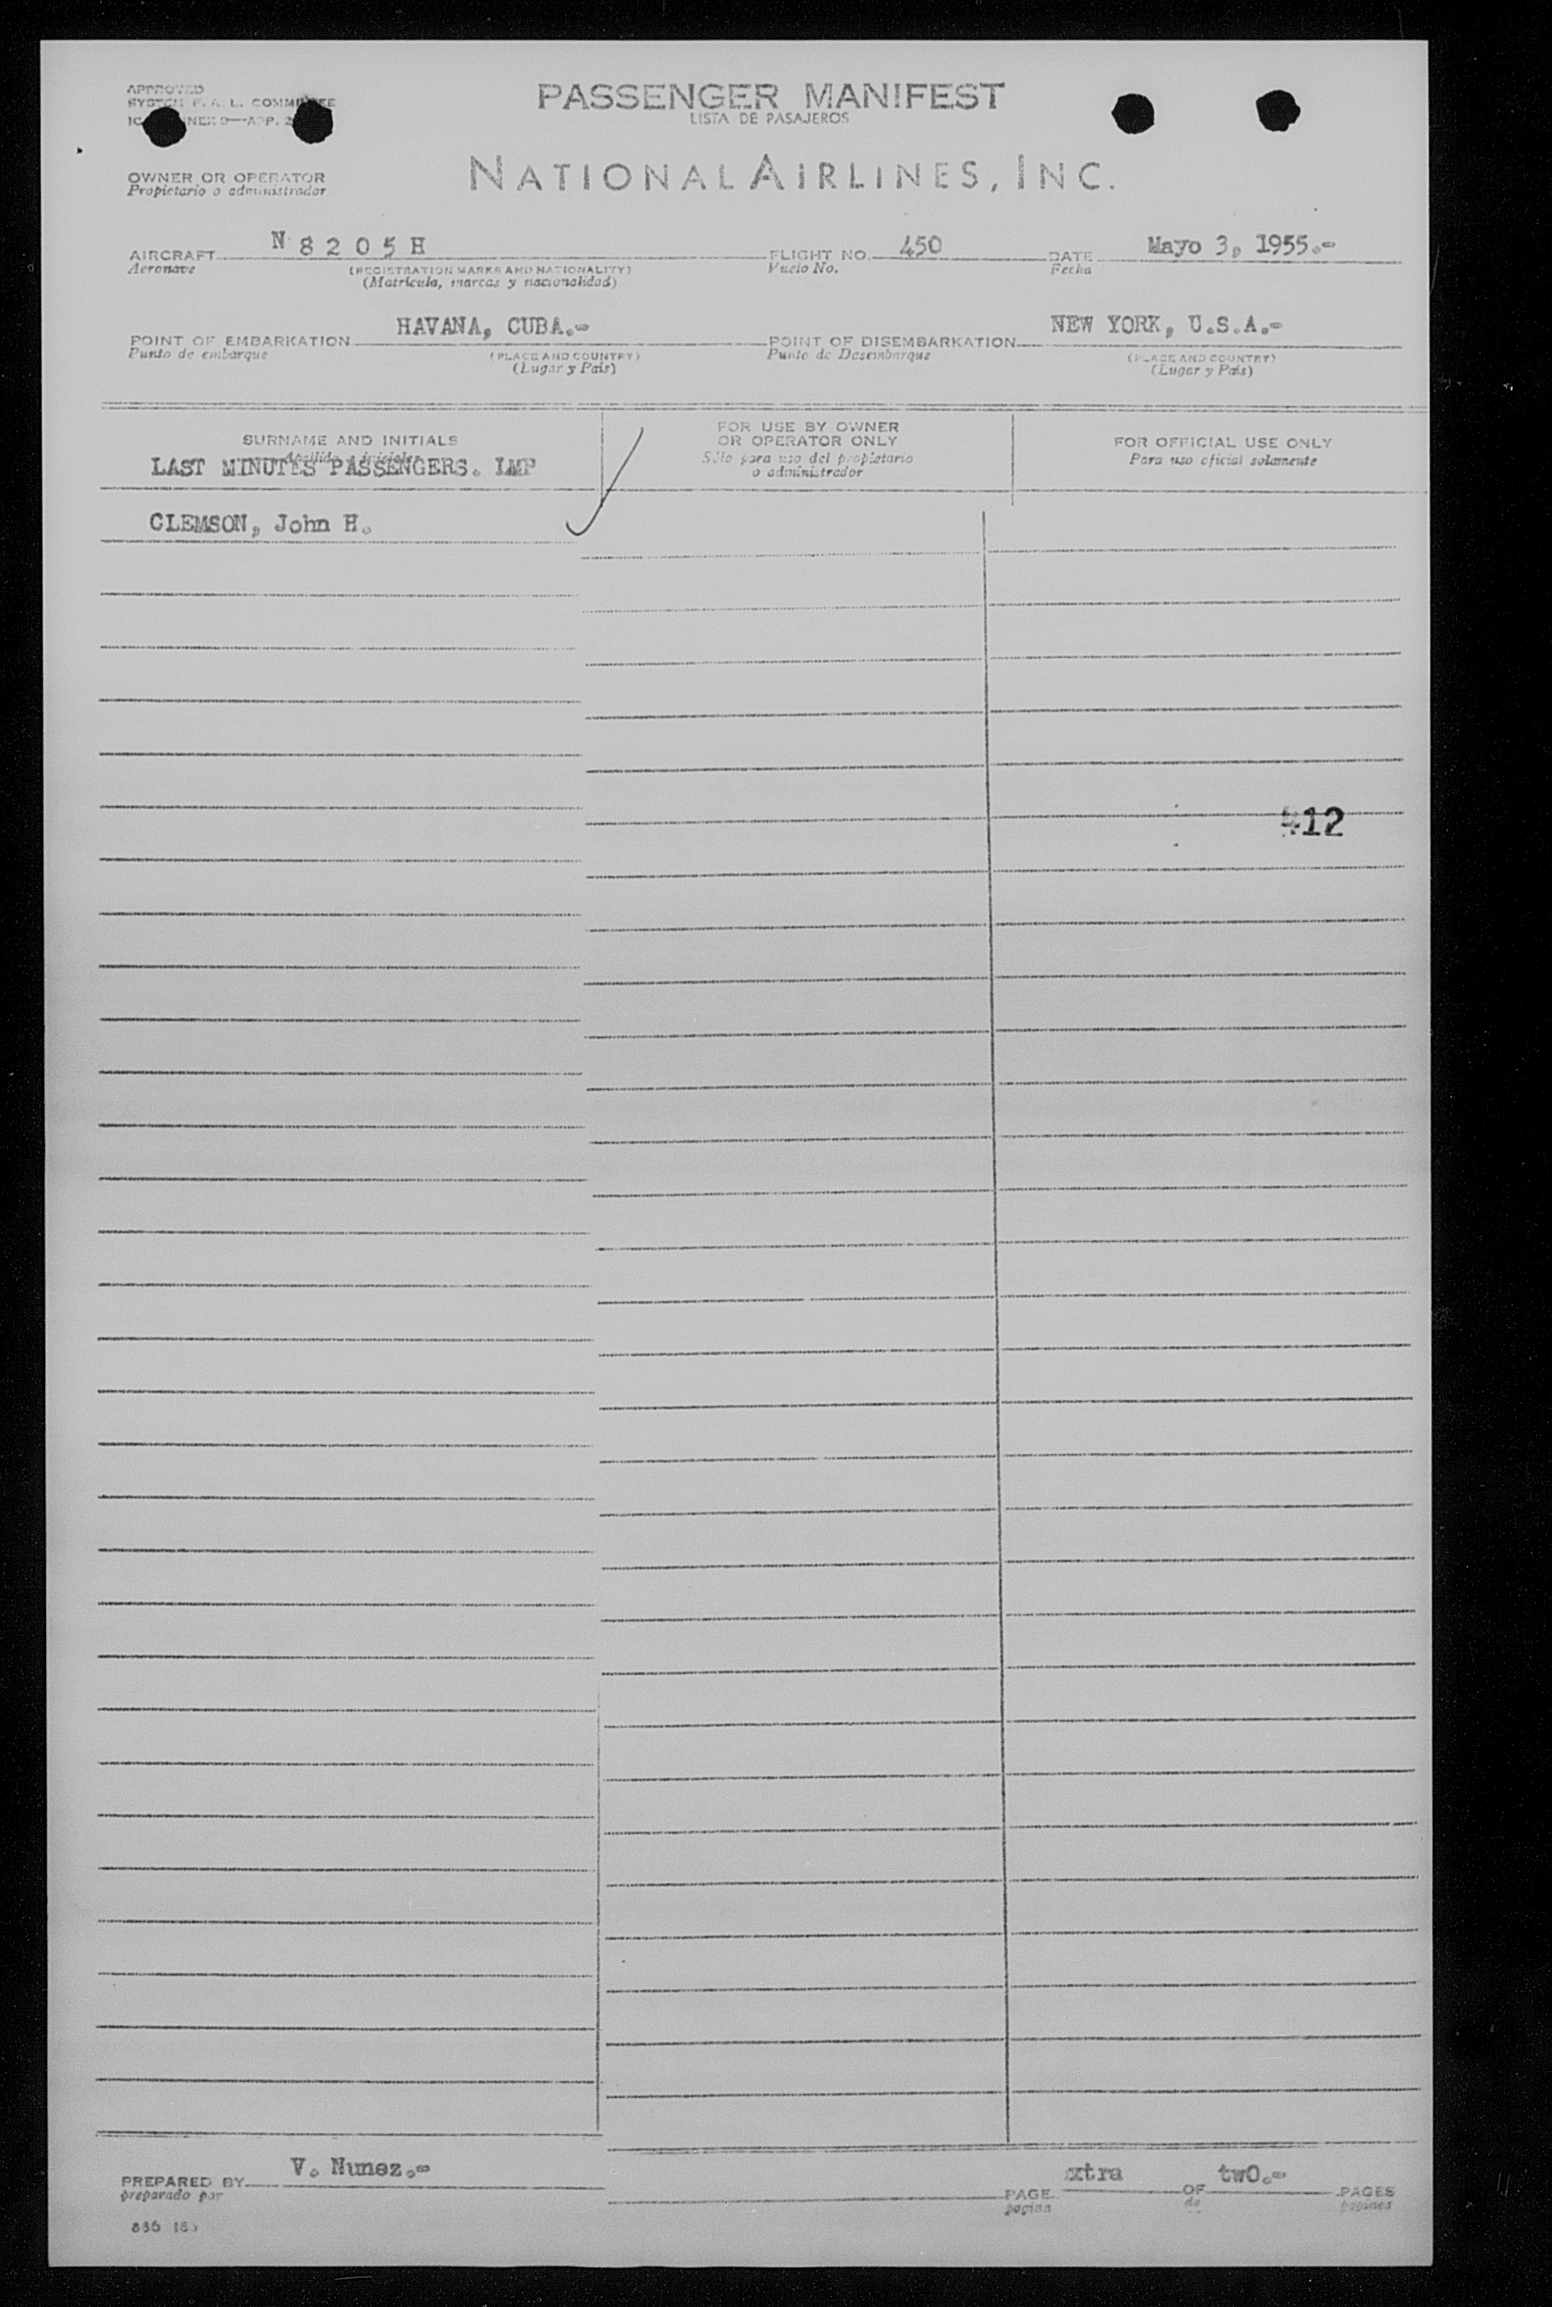 APPROVED
PASSENGER MANIFEST
LISTA DE PASAJEROS
OWNER OR OPERATOR
Propietario o administrador
NATIONAL AIRLINES, INC.
AIRCRAFT N 8 2 0 5 H FLIGHT NO. 450 DATE Mayo 3, 1955.-
Aeronave (REGISTRATION MARKS AND NATIONALITY) Vuelo No. Fecha
(Matrícula, marcas y nacionalidad)
POINT OF EMBARKATION HAVANA, CUBA.- POINT OF DISEMBARKATION NEW YORK, U.S.A.-
Punto de embarque (PLACE AND COUNTRY) Punto de Desembarque (PLACE AND COUNTRY)
(Lugar y País) (Lugar y País)
SURNAME AND INITIALS
LAST MINUTES PASSENGERS. LMP
FOR USE BY OWNER
OR OPERATOR ONLY
Sólo para uso del propietario
o administrador
FOR OFFICIAL USE ONLY
Para uso oficial solamente
CLEMSON, John H.
12
PREPARED BY V. Nunez.- PAGE xtra OF twO.- PAGES
preparado por pagina de paginas